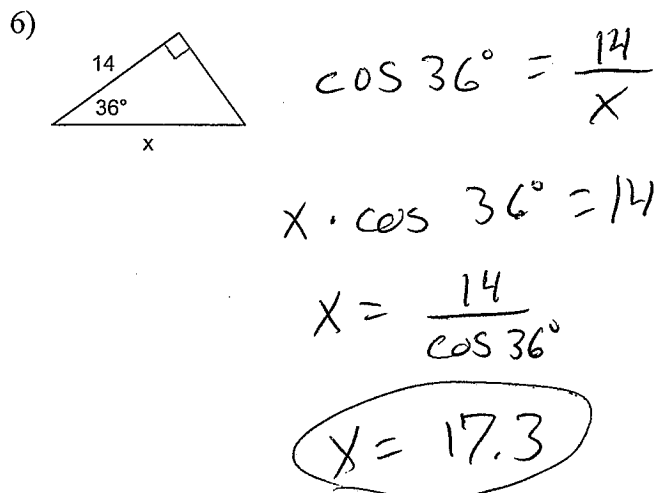 6)
14
36°
x
cos 36° = 14/x
x · cos 36° = 14
x = 14/cos 36°
x = 17.3